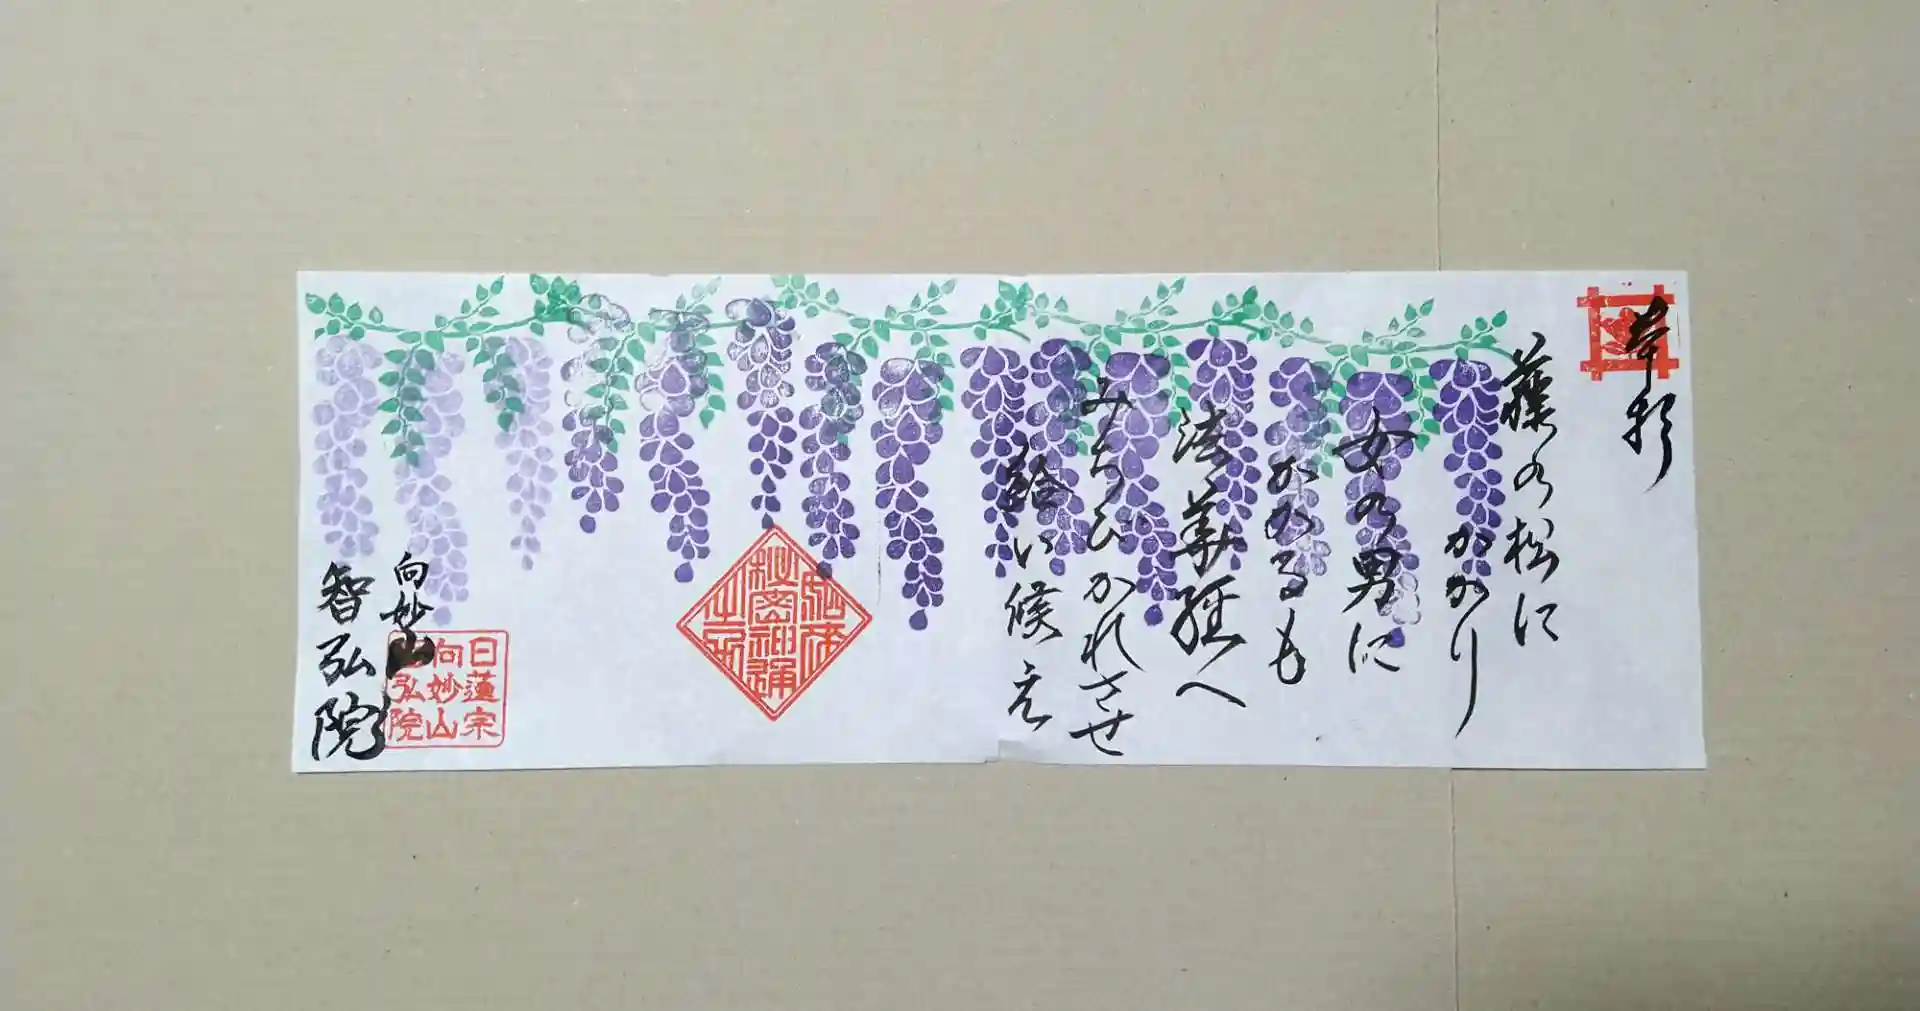 奉拝
藤の松に
かかり
女の男に
かかるも
法華経へ
みちひかれさせ
給い候え
秘密神通
向妙山
智弘院
日蓮宗
向妙山
弘院